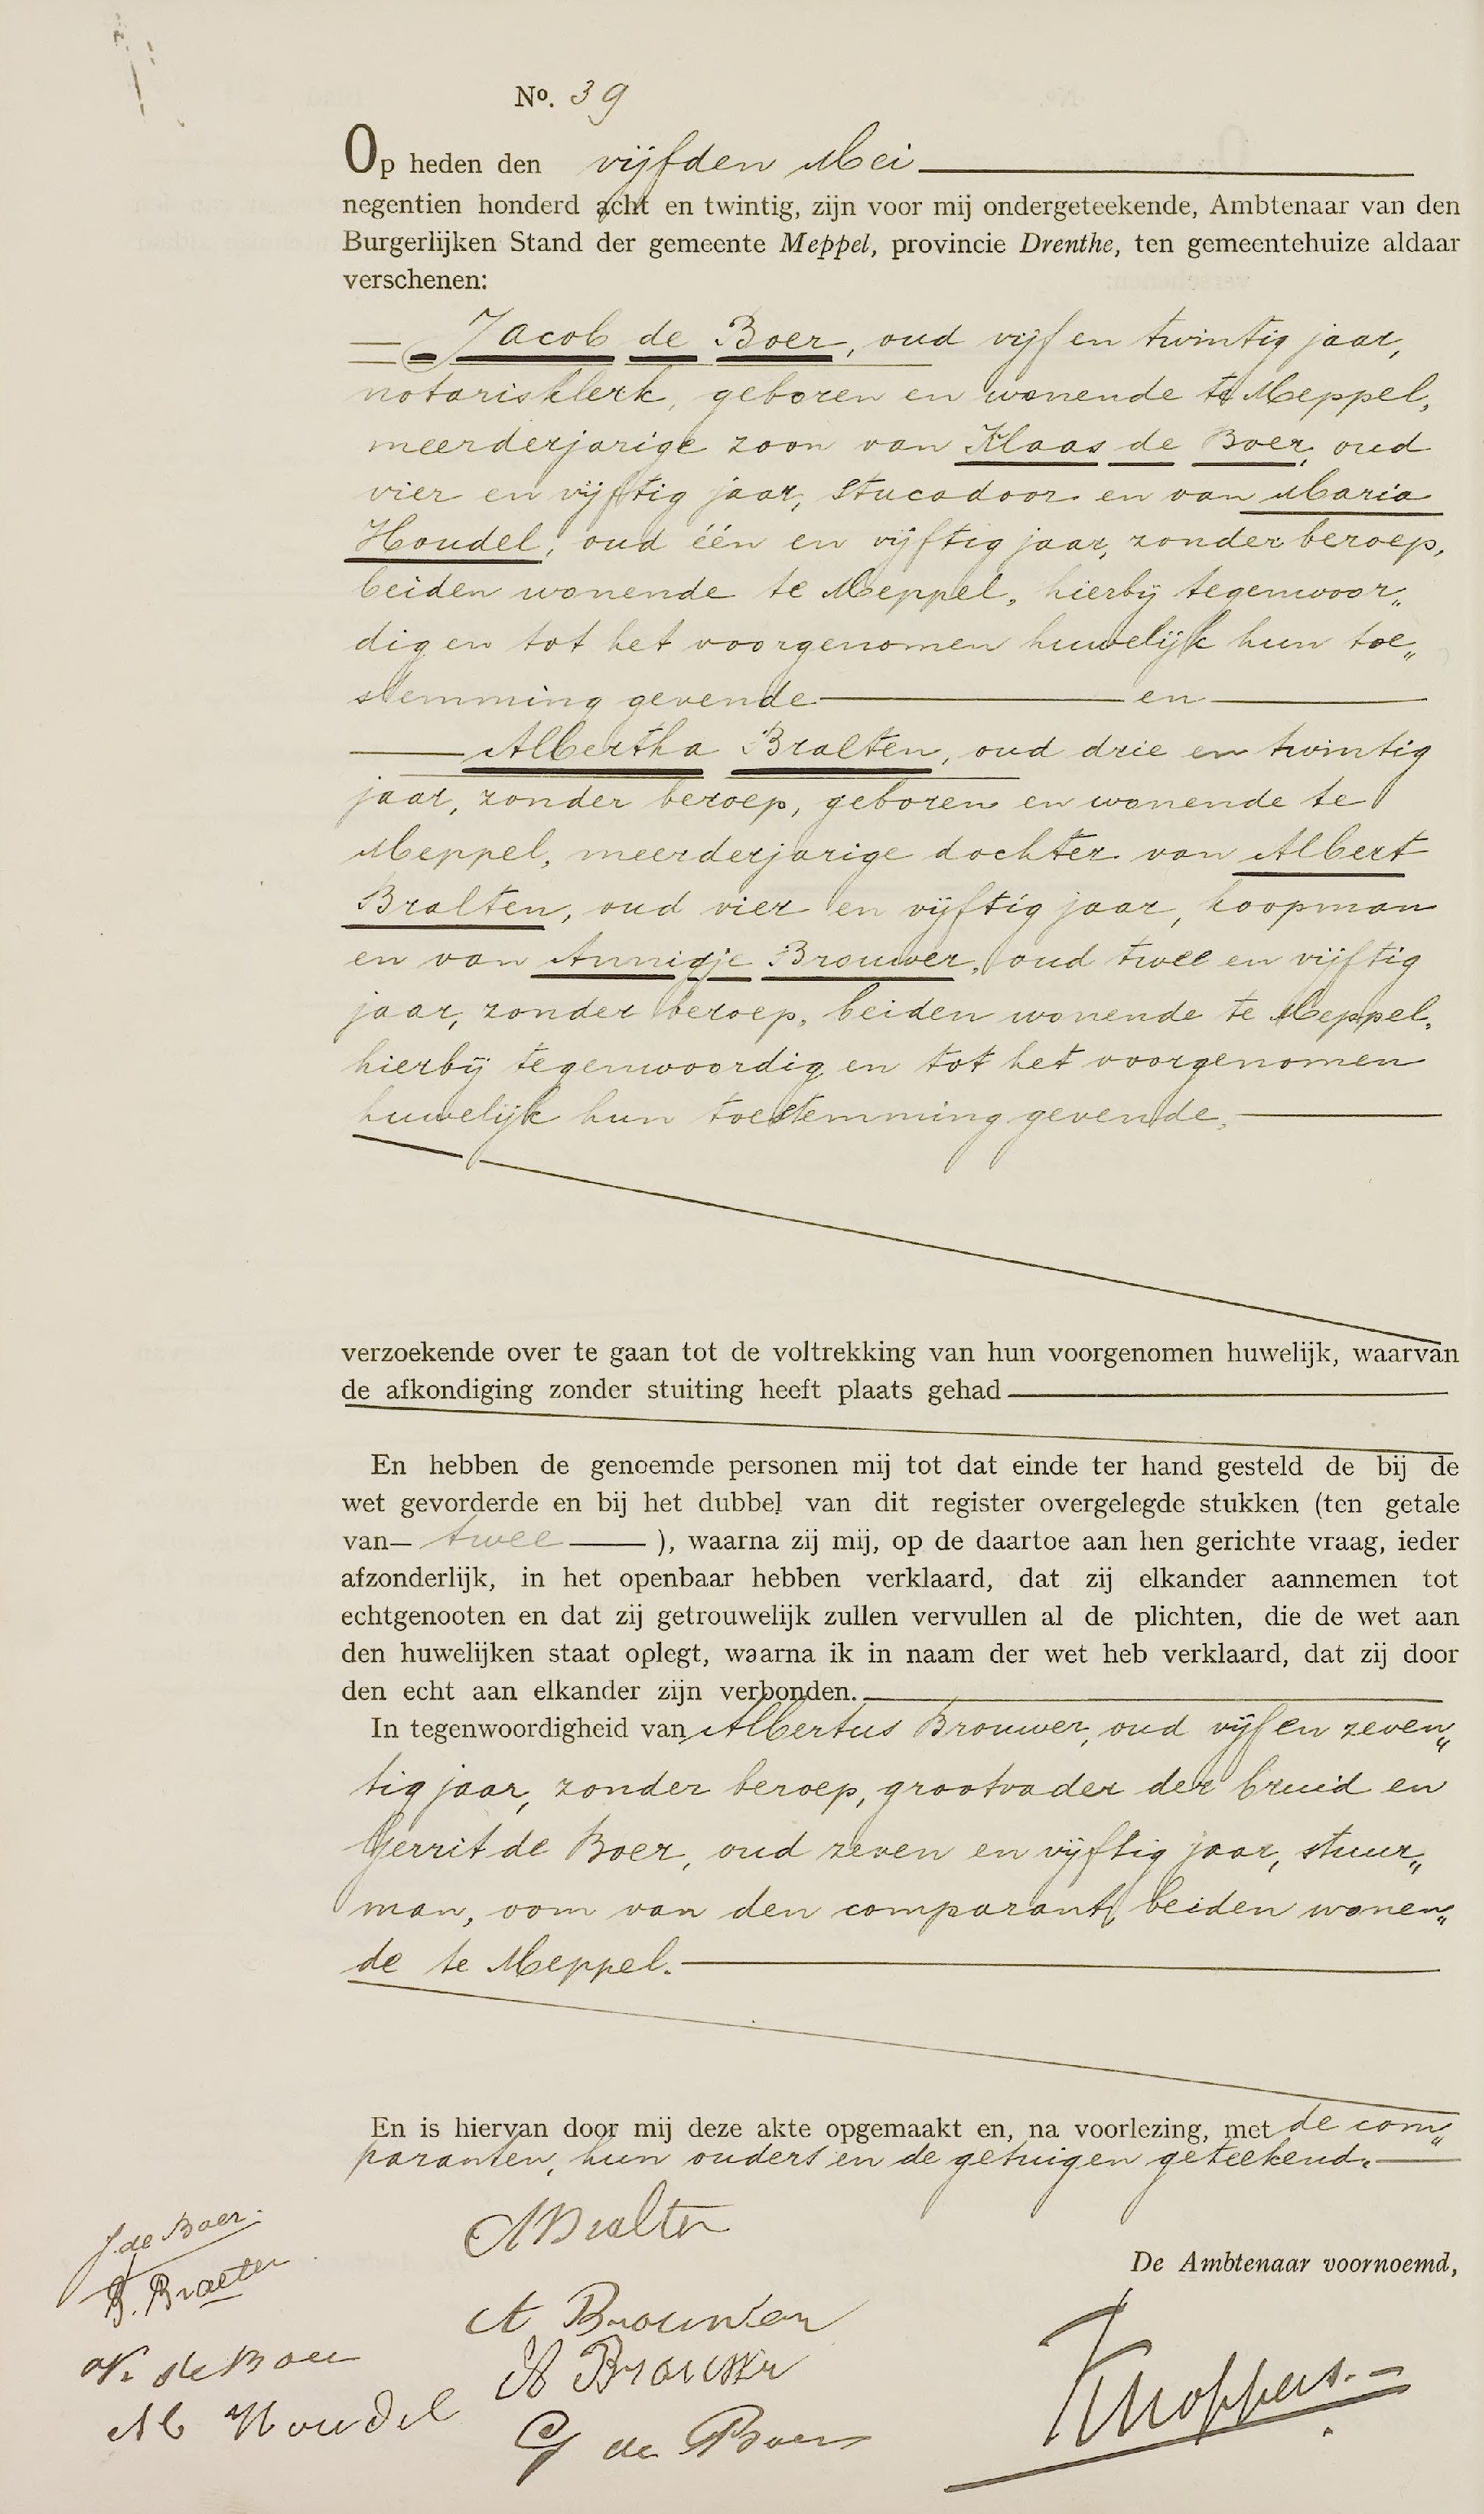 No. 39
Op heden den vijfden Mei
negentien honderd acht en twintig, zijn voor mij ondergeteekende, Ambtenaar van den
Burgerlijken Stand der gemeente Meppel, provincie Drenthe, ten gemeentehuize aldaar
verschenen:
Jacob de Boer, oud vijf en twintig jaar,
notarisklerk, geboren en wonende te Meppel,
meerderjarige zoon van Klaas de Boer, oud
vier en vijftig jaar, stucadoor en van Maria
Houdel, oud één en vijftig jaar, zonder beroep,
beiden wonende te Meppel, hierbij tegenwoor„
dig en tot het voorgenomen huwelijk hun toe„
stemming gevende en
Albertha Bralten, oud drie en twintig
jaar, zonder beroep, geboren en wonende te
Meppel, meerderjarige dochter van Albert
Bralten, oud vier en vijftig jaar, koopman
en van Annigje Brouwer, oud twee en vijftig
jaar, zonder beroep, beiden wonende te Meppel,
hierbij tegenwoordig en tot het voorgenomen
huwelijk hun toestemming gevende,
verzoekende over te gaan tot de voltrekking van hun voorgenomen huwelijk, waarvan
de afkondiging zonder stuiting heeft plaats gehad
En hebben de genoemde personen mij tot dat einde ter hand gesteld de bij de
wet gevorderde en bij het dubbel van dit register overgelegde stukken (ten getale
van twee ), waarna zij mij, op de daartoe aan hen gerichte vraag, ieder
afzonderlijk, in het openbaar hebben verklaard, dat zij elkander aannemen tot
echtgenooten en dat zij getrouwelijk zullen vervullen al de plichten, die de wet aan
den huwelijken staat oplegt, waarna ik in naam der wet heb verklaard, dat zij door
den echt aan elkander zijn verbonden.
In tegenwoordigheid van Albertus Brouwer, oud vijf en zeven„
tig jaar, zonder beroep, grootvader der bruid en
Gerrit de Boer, oud zeven en vijftig jaar, stuur„
man, oom van den comparant, beiden wonen„
de te Meppel.
En is hiervan door mij deze akte opgemaakt en, na voorlezing, met de com„
paranten, hun ouders en de getuigen geteekend.
J. de Boer.
B. Bralten
K. de Boer
M Houdel
A Bralten
A Brouwer
A Brouwer
G de Boer
De Ambtenaar voornoemd,
Knoppers.